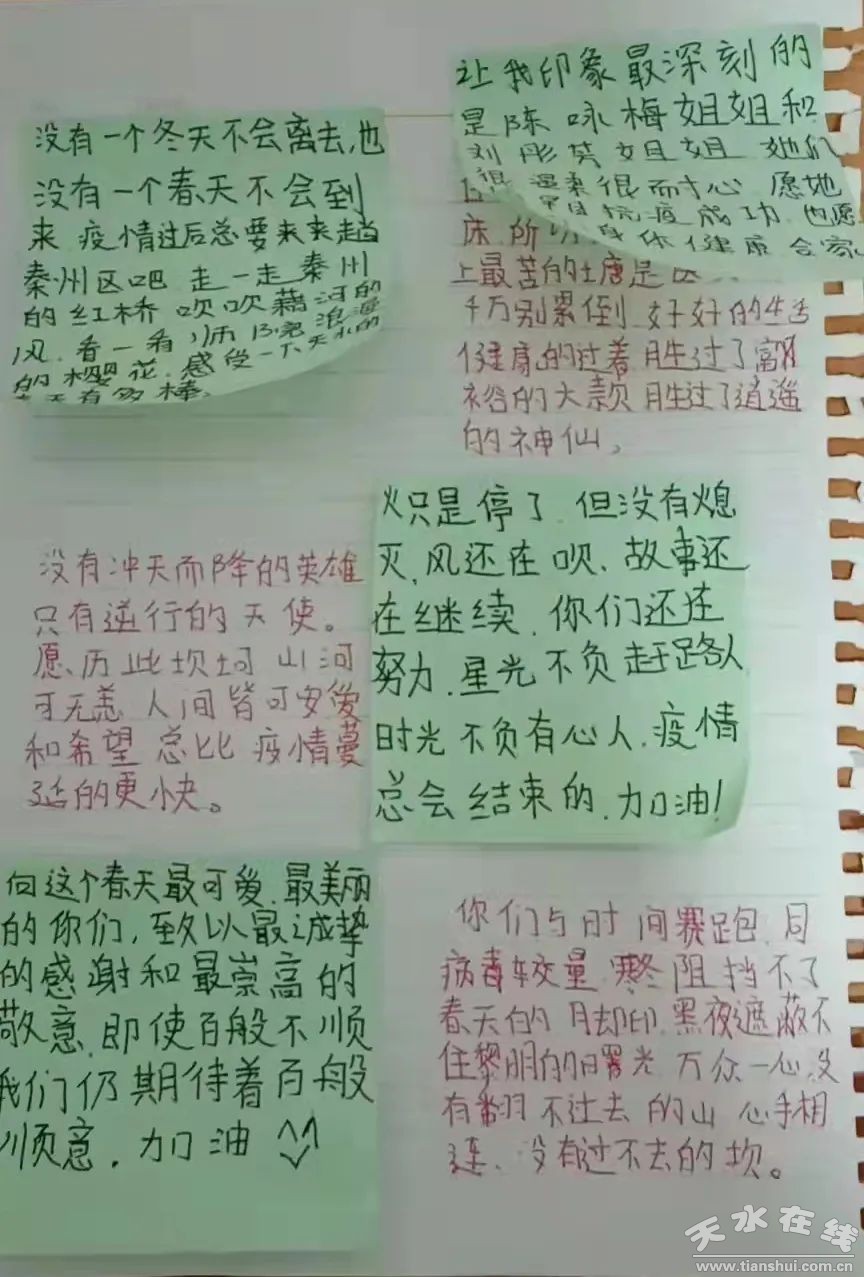 没有一个冬天不会离去,也
没有一个春天不会到
来 疫情过后总要来来趟
秦州区吧 走一走 秦州
的红桥 吹吹藉河的
风.看一看 浪漫
的樱花.感受一下天水的
有多棒.
让我印象最深刻的
是陈咏梅姐姐和
刘彤芳姐姐 她们
很温柔很耐心 愿她
抗疫成功.也愿
身体健康 合家
床.所
上最苦的土唐是医
千万别累倒 好好的生活
健康的过着 胜过了富
裕的大款 胜过了逍遥
的神仙。
火只是停了.但没有熄
灭.风还在吹.故事还
在继续.你们还连
努力.星光不负赶路人
时光不负有心人.疫情
总会结束的.加油!
没有冲天而降的英雄
只有逆行的天使。
愿.历此坎坷 山河
可无恙 人间皆可安爱
和希望 总比 疫情蔓
延的更快。
向这个春天最可爱.最美丽
的你们,致以最诚挚
的感谢和最崇高的
敬意.即使百般不顺
我们仍期待着百般
顺意.加油
你们与时间赛跑.同
病毒较量.寒冬阻挡不了
春天的脚印.黑夜遮蔽不
住黎明的曙光 万众一心.没
有翻不过去的山 心手相
连、没有过不去的坎。
天水在线
www.tianshui.com.cn